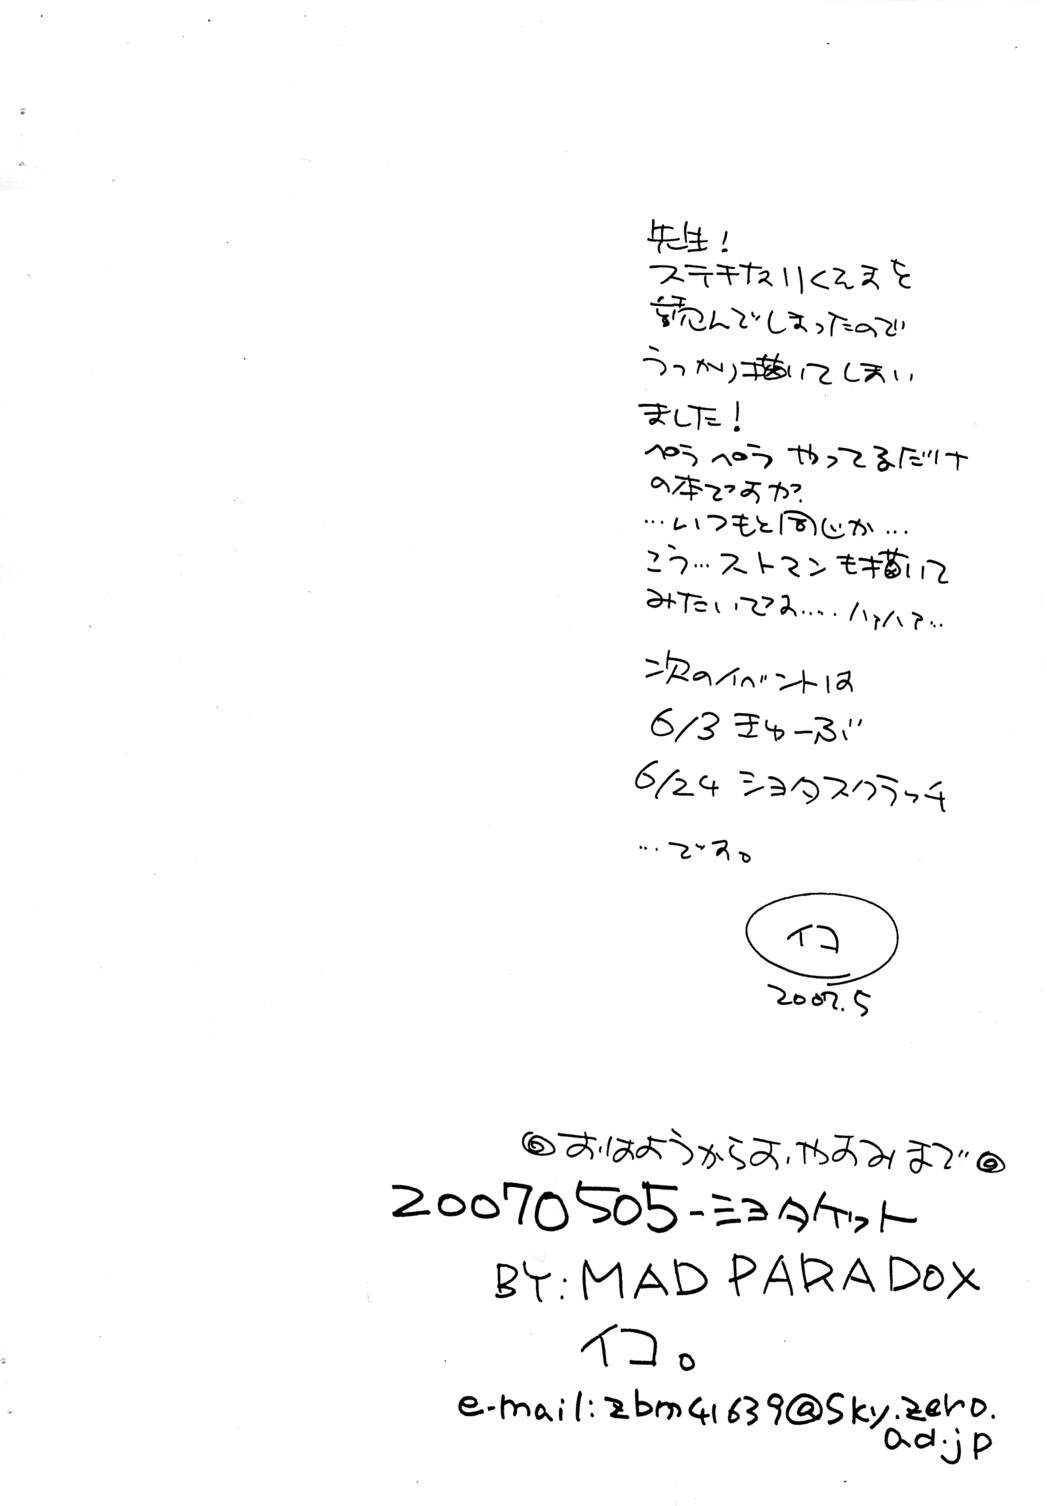 先生!
ステキなりくえすを
読んでしまったので
うっかり描いてしまい
ました!
ペラペラ やってるだけ
の本ですが?
…いつもと同じか…
こう…ストマンも描いて
みたいですよ…. ハァハァ…
次のイベントは
6/3 きゅーぶ
6/24 ショタスクラッチ
…です。
イコ
2007.5
◎おはようからおやすみまで◎
20070505-ショタケット
BY: MAD PARADOX
イコ。
e-mail: zbm41639@sky.zero.
ad.jp